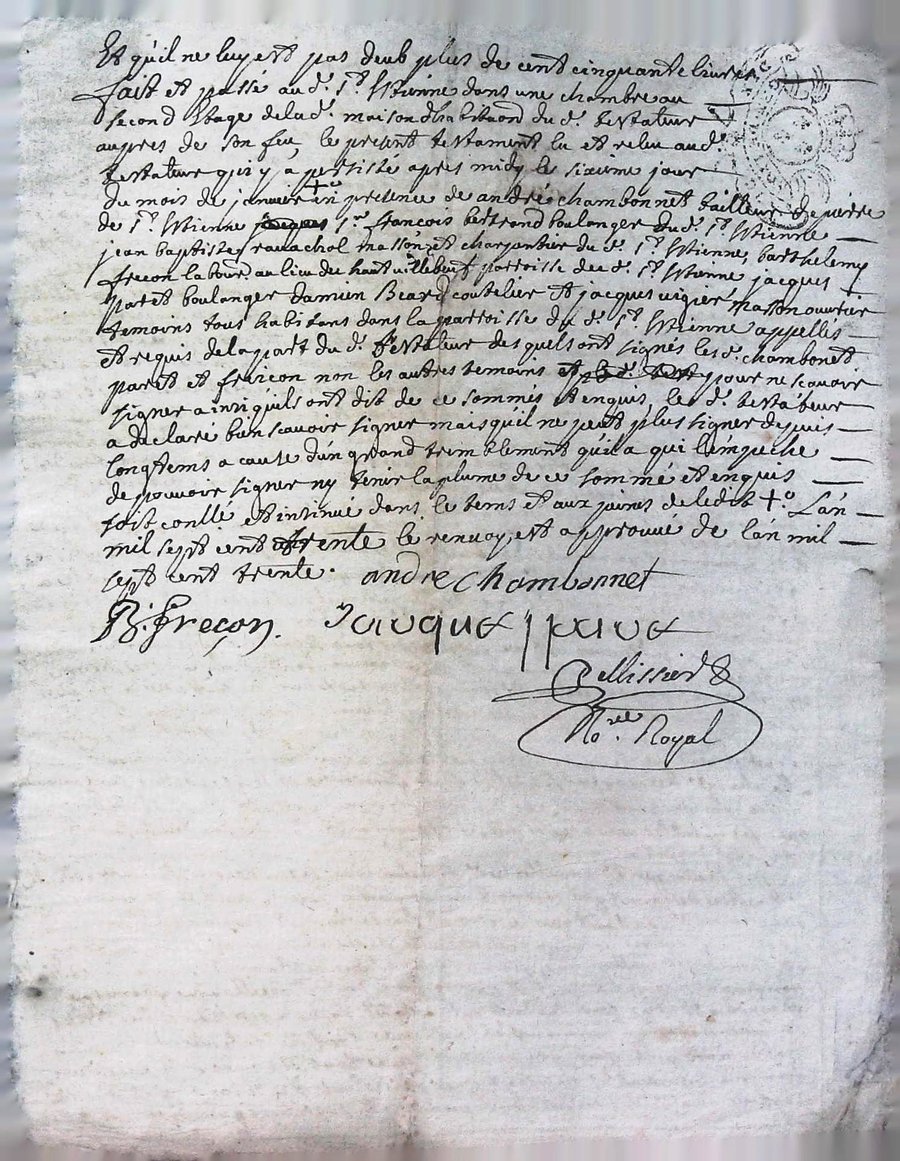 Et qu'il ne luy est pas deub plus de cent cinquante livres
fait et passé aud. St. Etienne dans une chambre au
second Etage de lad. maison d'habitaon du d. testateur
aupres de son feu, le present testament lu et relu aud.
testateur qui y a persisté apres midy le sixieme jour
du mois de janvier +o en presence de andré chambonnet tailleur de pierre
de St. Etienne sr. françois bertrand boulanger dud. St. Etienne
jean baptiste ravachol masson et charpentier du d. St. Etienne, barthelemy
frecon labour. au lieu de parroisse dud. St. Etienne jacques
paret boulanger Damien Beard coutelier et jacques vigier masson ouvrier
temoins tous habitans dans la parroisse du d. St. Etienne appellés
et requis de la part du d. testateur desquels ont signés les d. chambonet
paret et frecon non les autres temoins pour ne scavoir
signer ainsi qu'ils ont dit de ce sommés et enquis, le d. testateur
a declaré bien scavoir signer mais qu'il ne peut plus signer depuis
longtems a cause d'un grand tremblement qu'il a qui l'empeche
de pouvoir signer ny tenir la plume de ce sommé et enquis
soit conllé et insinué dans le tems et aux peines de ledit +o L'an
mil sept cent trente le renvoy est approuvé de l'an mil
sept cent trente. andre chambonnet
B. frecon. Jauque
Pellissier
No.re Royal